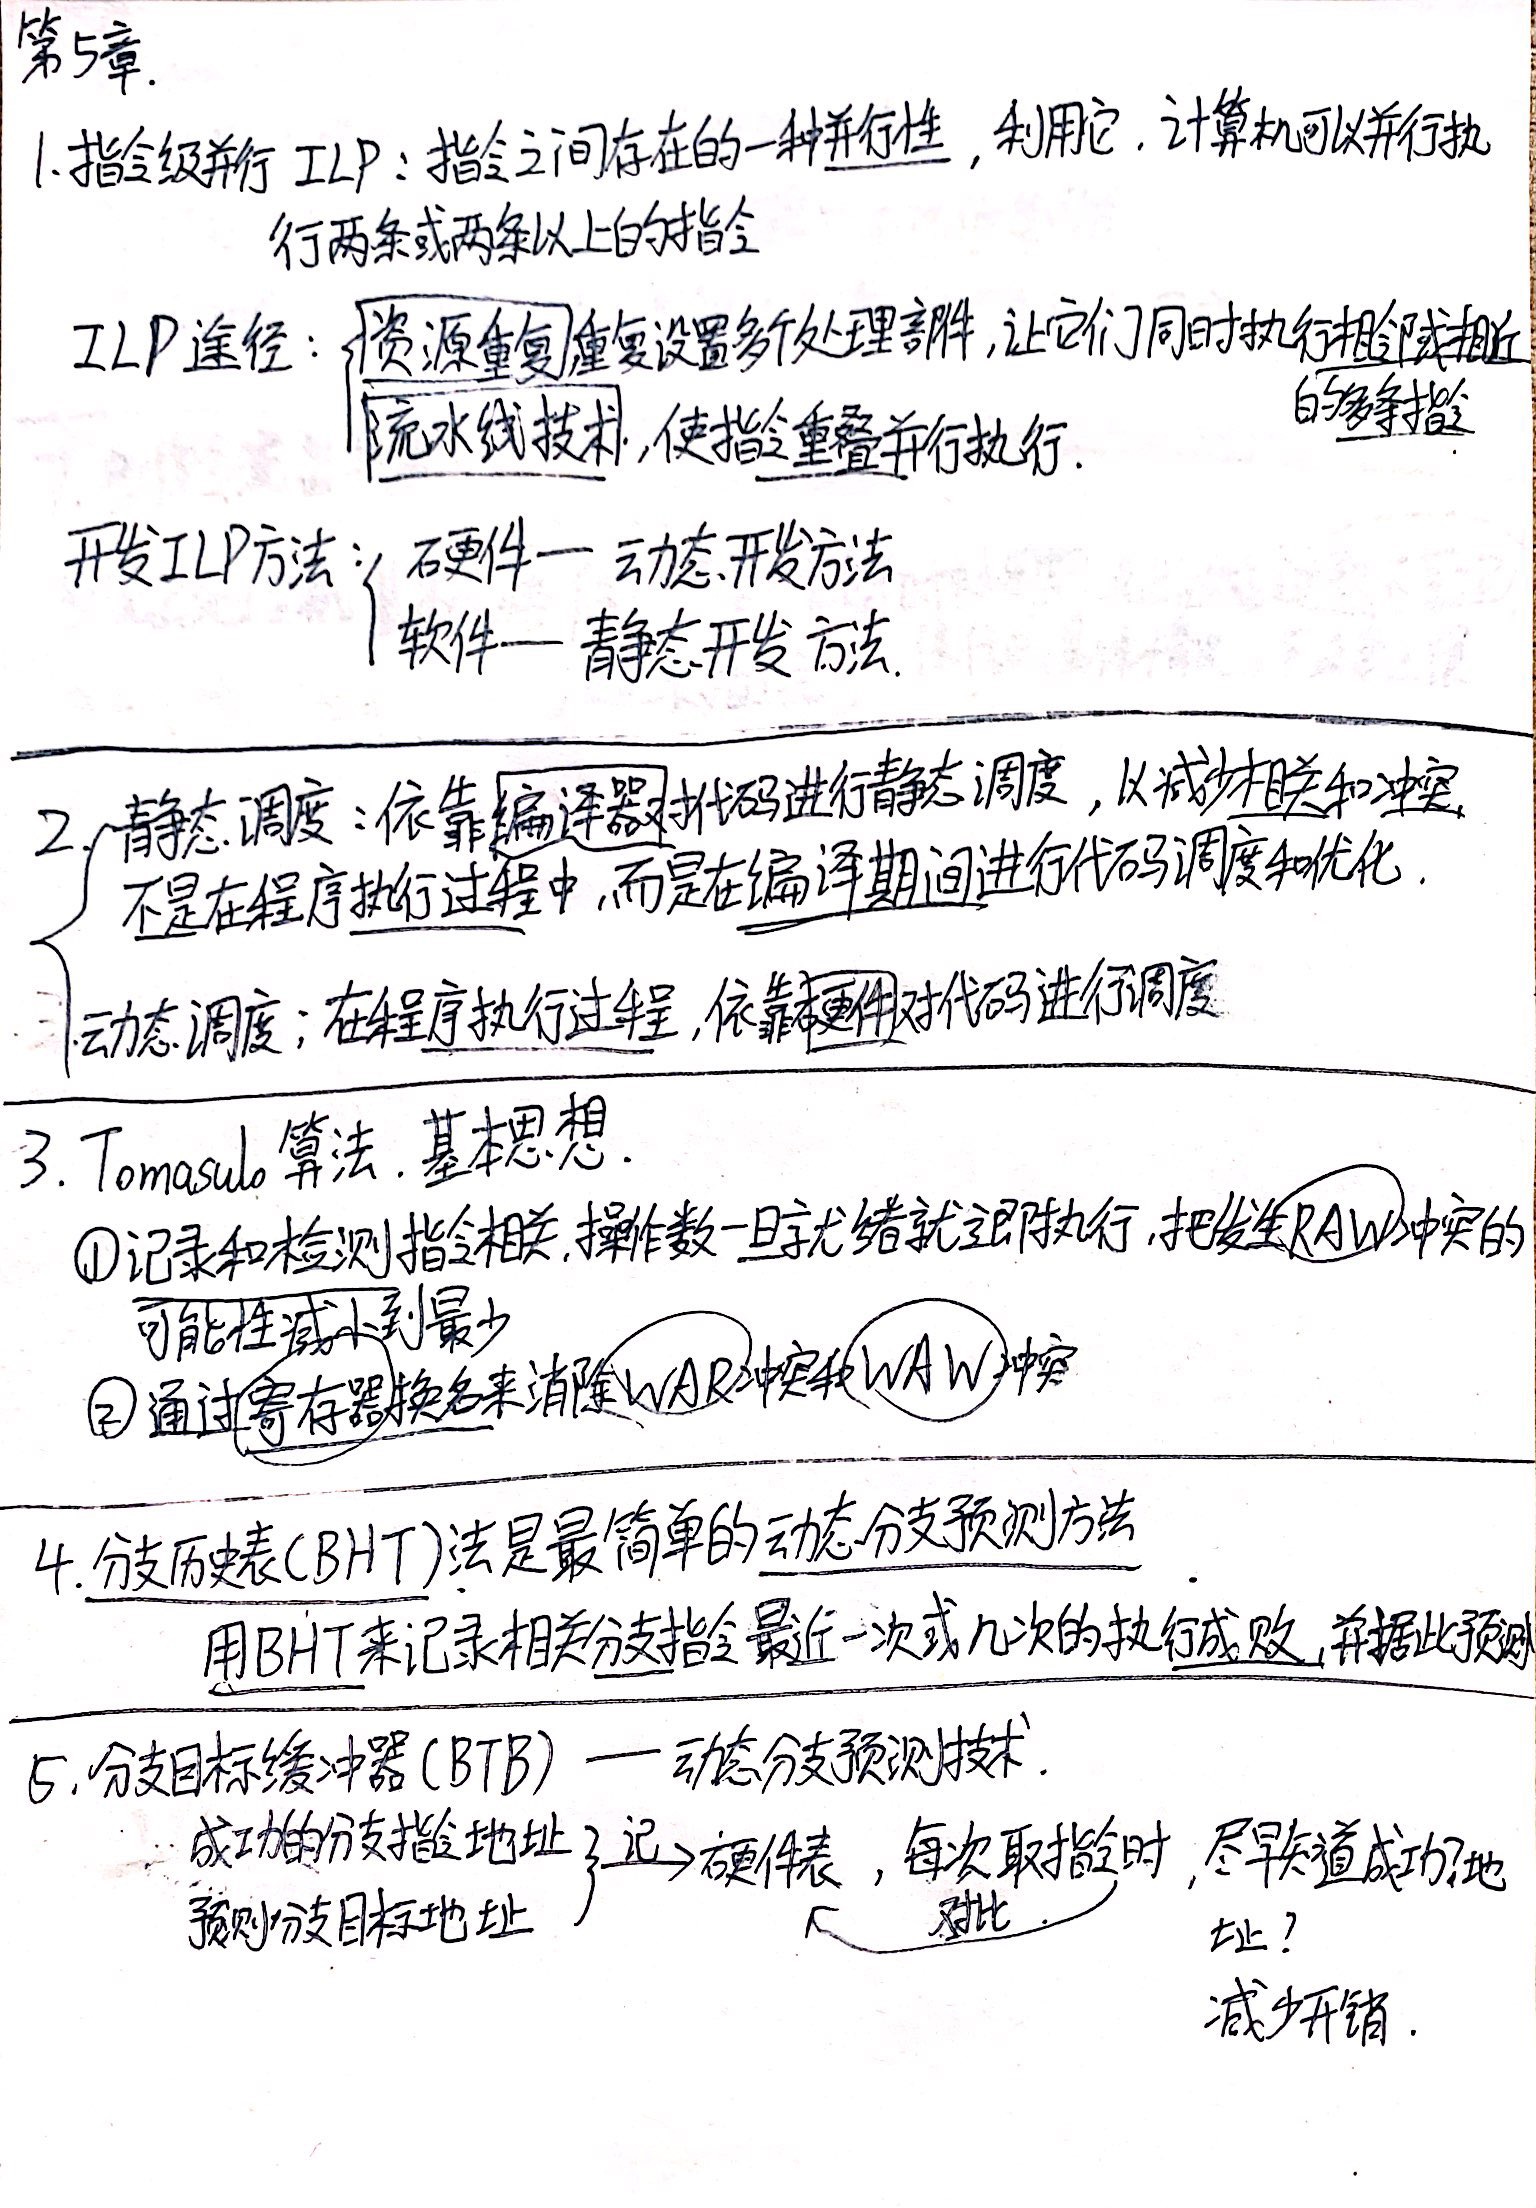 第5章.
1.指令级并行 ILP：指令之间存在的一种并行性，利用它.计算机可以并行执
行两条或两条以上的指令
ILP途径：资源重复,重复设置多个处理部件,让它们同时执行相邻或相近
的多条指令
流水线技术,使指令重叠并行执行.
开发ILP方法：硬件— 动态开发方法
软件— 静态开发方法.
2. 静态调度：依靠编译器对代码进行静态调度，以减少相关和冲突.
不是在程序执行过程中,而是在编译期间进行代码调度和优化.
动态调度；在程序执行过程,依靠硬件对代码进行调度
3. Tomasulo算法.基本思想.
①记录和检测指令相关,操作数一旦就绪就立即执行,把发生RAW冲突的
可能性减小到最少
②通过寄存器换名来消除WAR冲突和WAW冲突
4.分支历史表(BHT)法是最简单的动态分支预测方法.
用BHT来记录相关分支指令最近一次或几次的执行成败,并据此预测
5.分支目标缓冲器(BTB) — 动态分支预测技术.
成功的分支指令地址 } 记→硬件表，每次取指令时,尽早知道成功?地
预测分支目标地址
对比.
址?
减少开销.